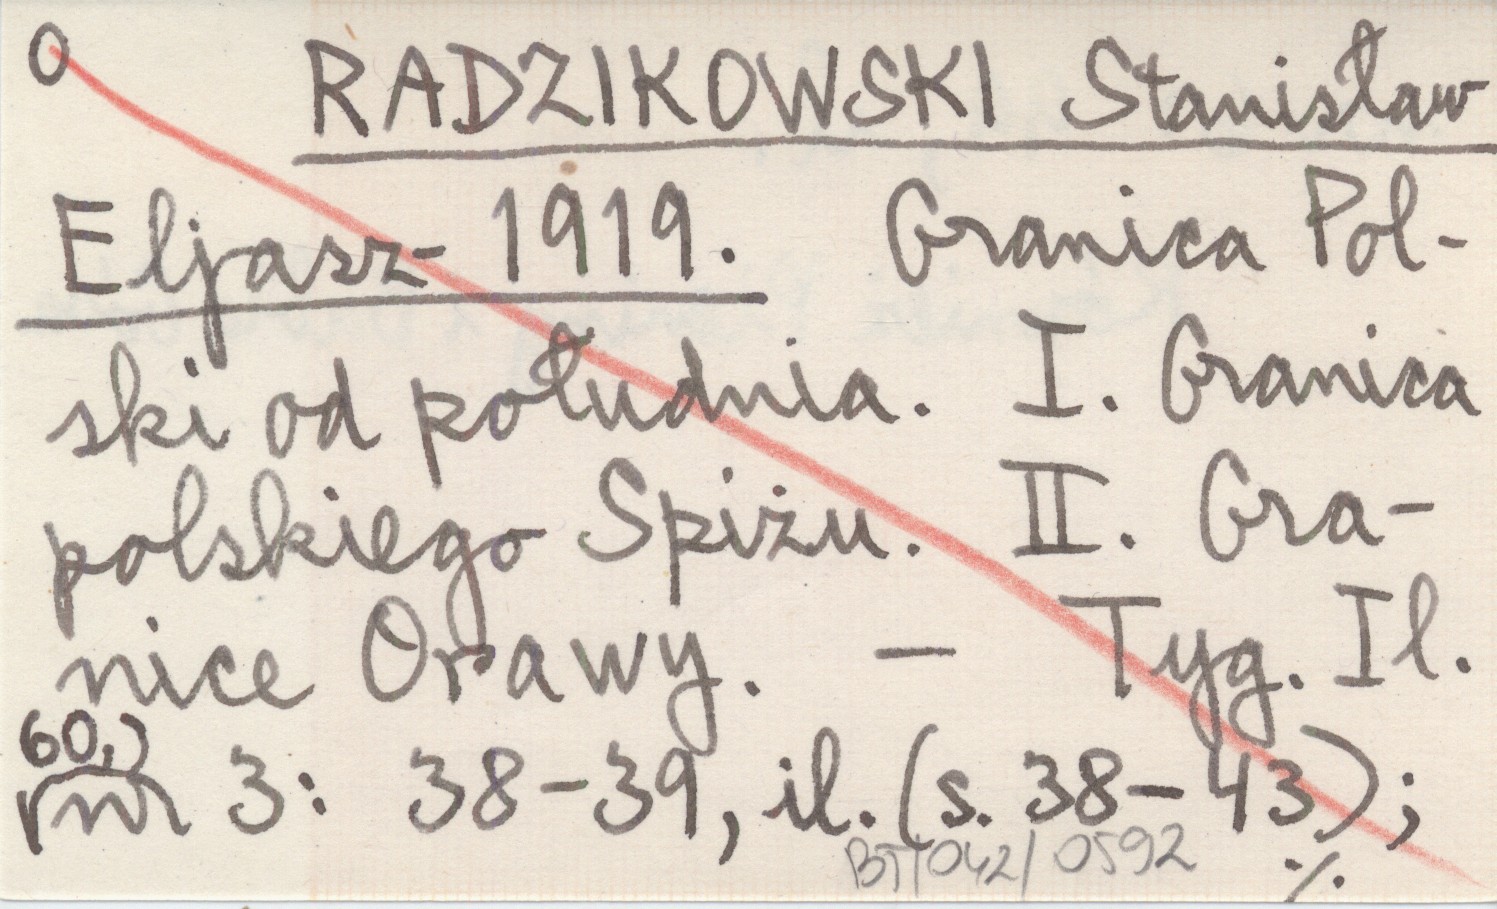 O RADZIKOWSKI Stanisław
Eljasz 1919. Granica Pol-
ski od południa. I. Granica
polskiego Spiżu. II. Gra-
nice Orawy. — Tyg. Il.
60,
nr 3: 38-39, il. (s. 38-43);
BT/042/0592
./.